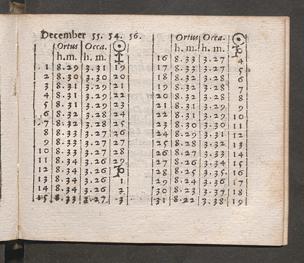 December 55. 54. 56.
Ortus Occa. ☉
h. m. h. m.
1 8. 29 3. 31 19
2 8. 30 3. 30 20
3 8. 31 3. 29 21
4 8. 31 3. 29 22
5 8. 31 3. 29 23
6 8. 32 3. 28 24
7 8. 32 3. 28 25
8 8. 33 3. 27 26
9 8. 33 3. 27 27
10 8. 33 3. 27 28
11 8. 34 3. 26 29
12 8. 34 3. 26 ♑
13 8. 34 3. 26 1
14 8. 34 3. 26 2
15 8. 33 3. 27 3
Ortus Occa. ☉
h. m. h. m. ♑
16 8. 33 3. 27 4
17 8. 33 3. 27 5
18 8. 32 3. 28 6
19 3. 28 7
20 3. 29 8
21 3. 29 9
22 8. 30 3. 30 10
3. 31 11
3. 32 12
8. 27 3. 33 13
8. 26 3. 34
8. 25 3. 35
8. 25 3. 35
29 8. 24 3. 36 17
30 8. 23 3. 37 18
31 8. 22 3. 38 19